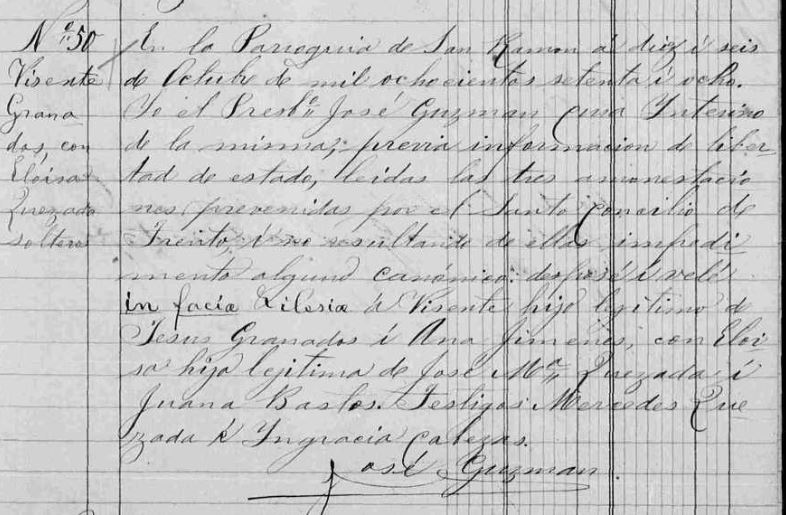 Nº 50
Visente
Grana
dos con
Eloisa
Quezada
solteros
En la Parroquia de San Ramon á diez i seis
de Octube de mil ochocientos setenta i ocho.
Yo el Presbº José Guzman Cura Interino
de la misma; previa informacion de liber-
tad de estado, leidas las tres amonestacio
nes prevenidas por el Santo Concilio de
Trento, i no resultando de ellas impedi
mento alguno canónico: desposé i velé
in facia Eclesia á Visente hijo legitimo de
Jesus Granados i Ana Jimenes, con Eloi
sa hija legitima de José Mª Quezada i
Juana Bastos. Testigos Mercedes Que
zada é Yngracia Cabezas.
José Guzman.